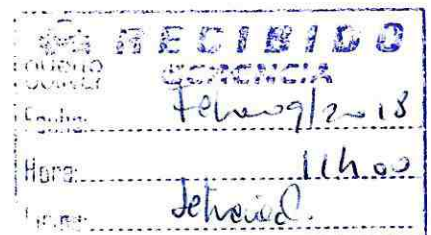 RECIBIDO
GERENCIA
Fecha: Febrero 9/2018
Hora: 11h00
Firma: